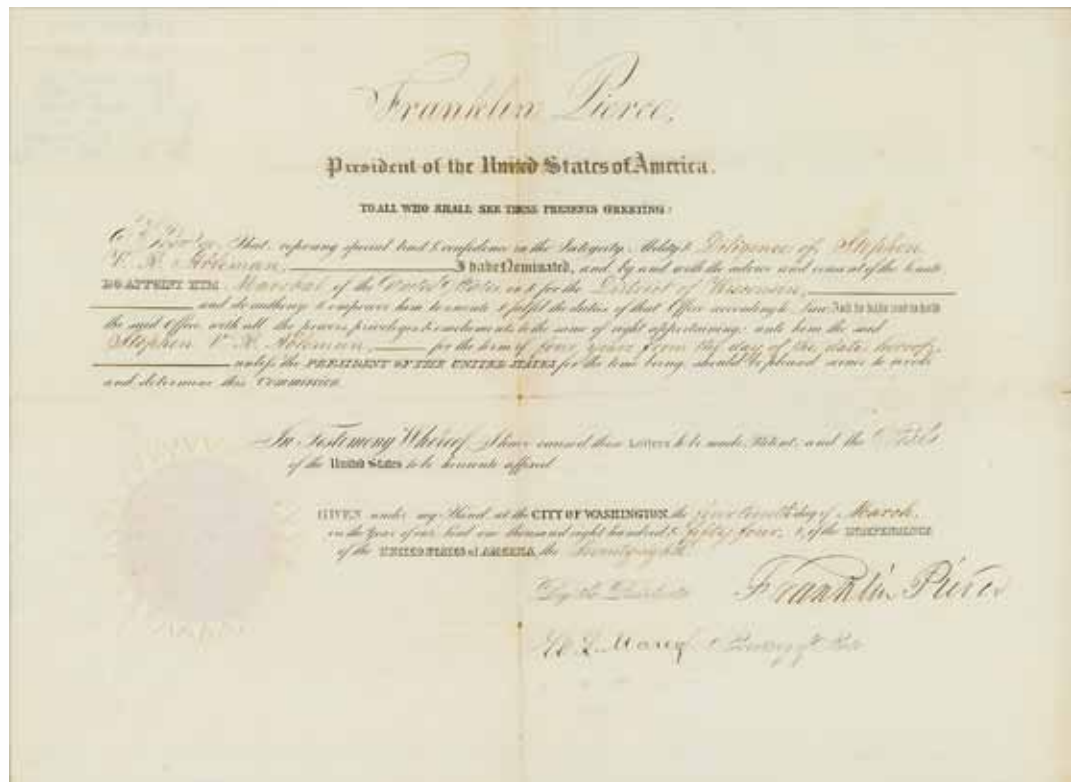 Franklin Pierce,
President of the United States of America.
TO ALL WHO SHALL SEE THESE PRESENTS GREETING:
Know Ye, That, reposing special trust & confidence in the Integrity, Ability & Diligence of Stephen
V. R. Ableman, I have Nominated, and, by and with the advice and consent of the Senate
DO APPOINT HIM Marshal of the United States in & for the District of Wisconsin,
and do authorize & empower him to execute & fulfil the duties of that Office according to Law; And to have and to hold
the said Office with all the powers, privileges & emoluments to the same of right appertaining unto him the said
Stephen V. R. Ableman, for the term of four years from the day of the date hereof,
unless the PRESIDENT OF THE UNITED STATES for the time being should be pleased sooner to revoke
and determine this Commission.
In Testimony Whereof, I have caused these Letters to be made Patent, and the Seal
of the United States to be hereunto affixed
GIVEN under my Hand at the CITY OF WASHINGTON the day of March
in the Year of our Lord one thousand eight hundred & fifty four, & of the INDEPENDENCE
of the UNITED STATES of AMERICA, the Seventy eighth
By the President Franklin Pierce
W. L. Marcy Secretary of State